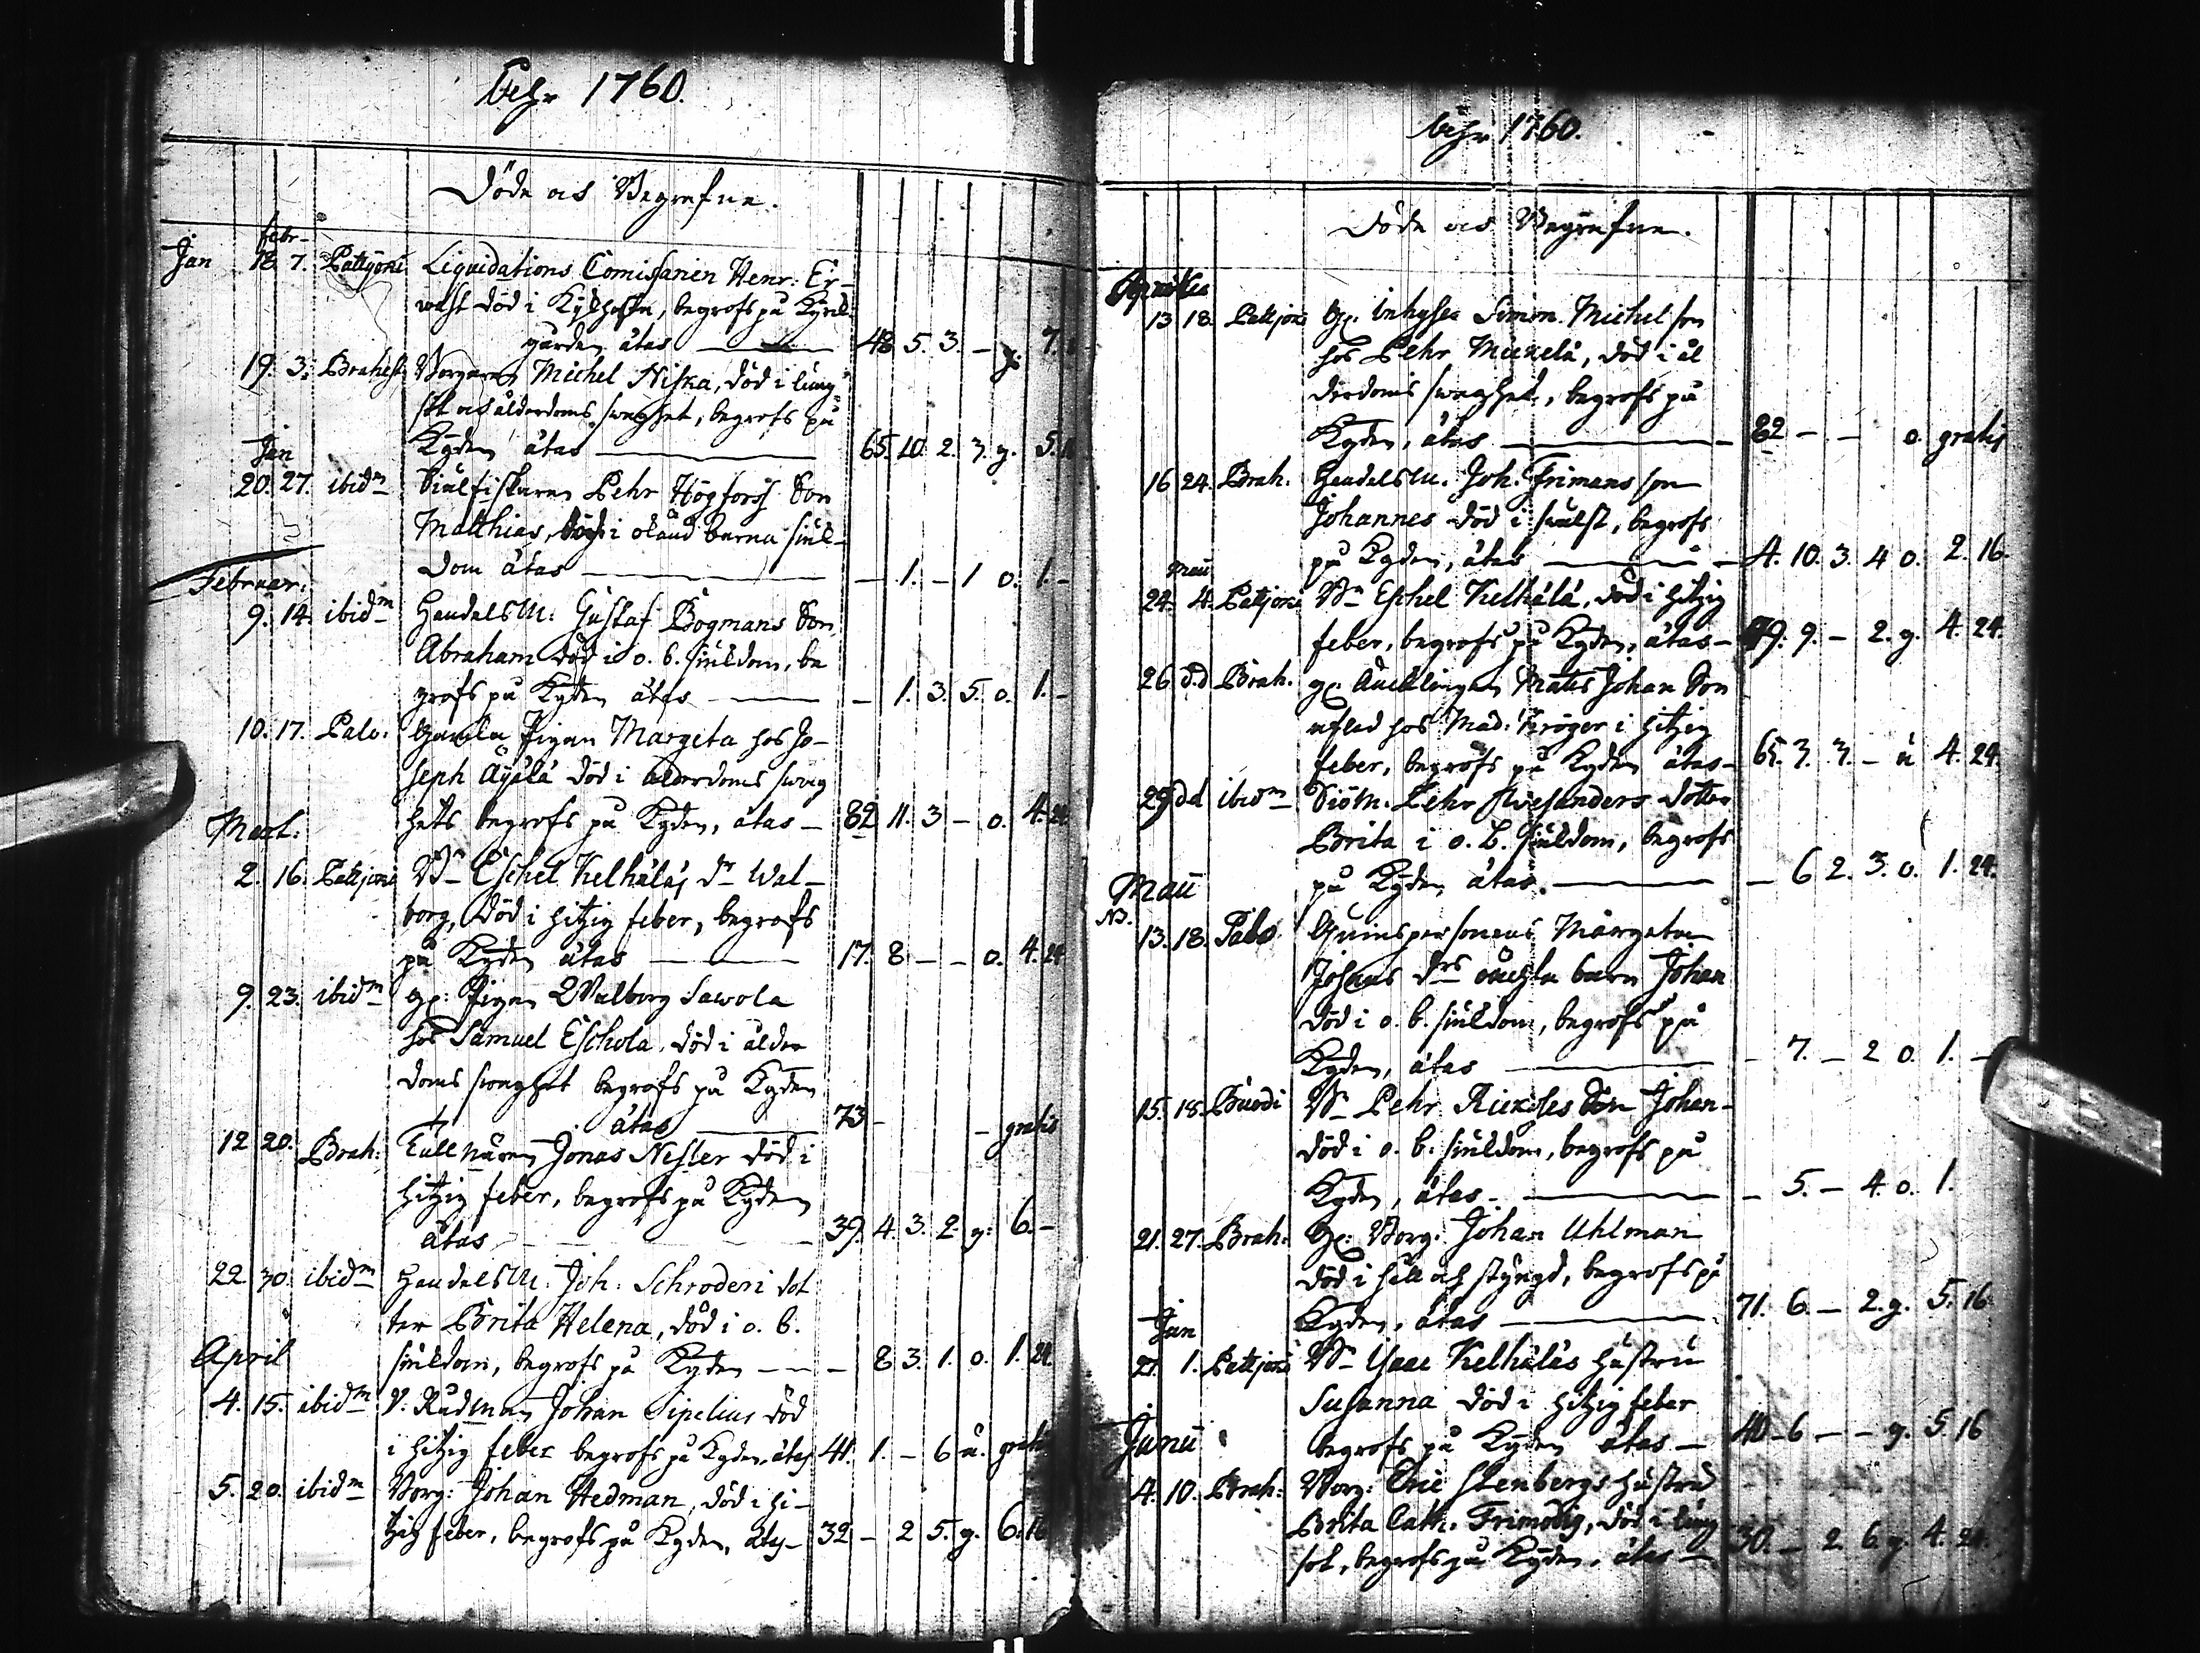 Åhr 1760.
Döde och Begrafne.
Jan 18. febr. 7. Pattijoki Liquidations Comissarien Henr: Ey-
wast död i , begrofs på Kyrck
gården ätas — 48 5. 3. — g. 7.
19. 3. Brahest. Borgaren Michel Niska, död i lung
sot och ålderdoms swaghet, begrofs på
Kgden ätas — 65. 10. 2. 3. g. 5.
Jan
20. 27. ibidm Siälfiskaren Pehr Högfors Son
Matthias, död i okänd barna siuk-
dom ätas — — 1. — 1 0. 1. —
Februar:
9. 14. ibidm HandelsM: Gustaf Bogmans Son
Abraham död i o. b. siukdom, be
grofs på Kgden ätas — — 1. 3. 5. 0. 1. —
10. 17. Palo. Gamla Pigan Margeta hos Jo-
seph Äÿälä död i ålderdoms swag
hets begrofs på Kgden, ätas — 82 11. 3 — 0. 4. 24
Mart.
2. 16. Pattjoki Bn Eschel Kelhäläs dr Wal-
borg, död i hitzig feber, begrofs
på Kgden ätas — 17. 8 — — 0. 4. 24
9. 23. ibidm gl: Pigan Walborg Sawola
hos Samuel Eschola, död i ålder
doms swaghet begrofs på Kgden
ätas — 73 — — gratis
12 20. Brah: Tullnären Jonas Nesler död i
hitzig feber, begrofs på Kgden
ätas — 39. 4. 3. 2. g: 6. —
22 30. ibidm HandelsM: Joh: Schroderi dot
ter Brita Helena, död i o. b.
siukdom, begrofs på Kgden — — 8 3. 1. 0. 1. 24.
April
4. 15. ibidm V. Rådman Johan Sipelius död
i hitzig feber begrofs på Kgden, ätas 41. 1. — 6 u. gratis
5. 20. ibidm Borg: Johan Hedman, död i hi-
tzig feber, begrofs på Kgden, ätas — 32 — 2 5. g. 6. 16
Åhr 1760.
Döde och Begrafne.
Aprilis
13 18. Pattjoki gl. Inhyses Simon Michelson
hos Pehr Mickelä, död i ål
derdoms swaghet, begrofs på
Kgden, ätas — 82 — — 0. gratis
16 24. Brah. HandelsM. Joh. Frimans son
Johannes död i swulst, begrofs
på Kgden, ätas — 4. 10. 3. 4 0. 2. 16.
Maii
24. 4. Pattjoki Bn Eschel Kelhälä, död i hitzig
feber, begrofs på Kgden, ätas — 49. 9. — 2. g. 4. 24.
26 d.d Brah. gl. Mats Johan Son
hos Mad: Kröger i hitzig
feber, begrofs på Kgden ätas — 65. 3. 3. — u 4. 24.
29 dd ibidm SiöM. Pehr dotter
Brita i o. b. siukdom, begrofs
på Kgden, ätas. — — 6 2. 3. 0. 1. 24.
Maii
NB.
13. 18. Palo Quinspersonens Margeta
Johans drs oächta barn Johan
död i o. b. siukdom, begrofs på
Kgden, ätas — — 7. — 2 0. 1. —
15. 18. Buodi Bn Pehr Son Johan
död i o. b. siukdom, begrofs på
Kgden, ätas — — 5. — 4. 0. 1.
21. 27. Brah: gl: Borg. Johan Uhlman
död i håll och styngd, begrofs på
Kgden, ätas — 71. 6. — 2. g. 5. 16.
Jun
27. 1. Pattjoki Bn Isaac Kelhäläs hustru
Susanna död i hitzig feber
begrofs på Kgden ätas — 40 — 6 — — g. 5. 16
Junii
4. 10. Brah: Borg: Eric Stenbergs hustru
Brita Cath: Frimodig, död i lung
sot, begrofs på Kgden, ätas — 30. — 2. 6. g. 4. 24.